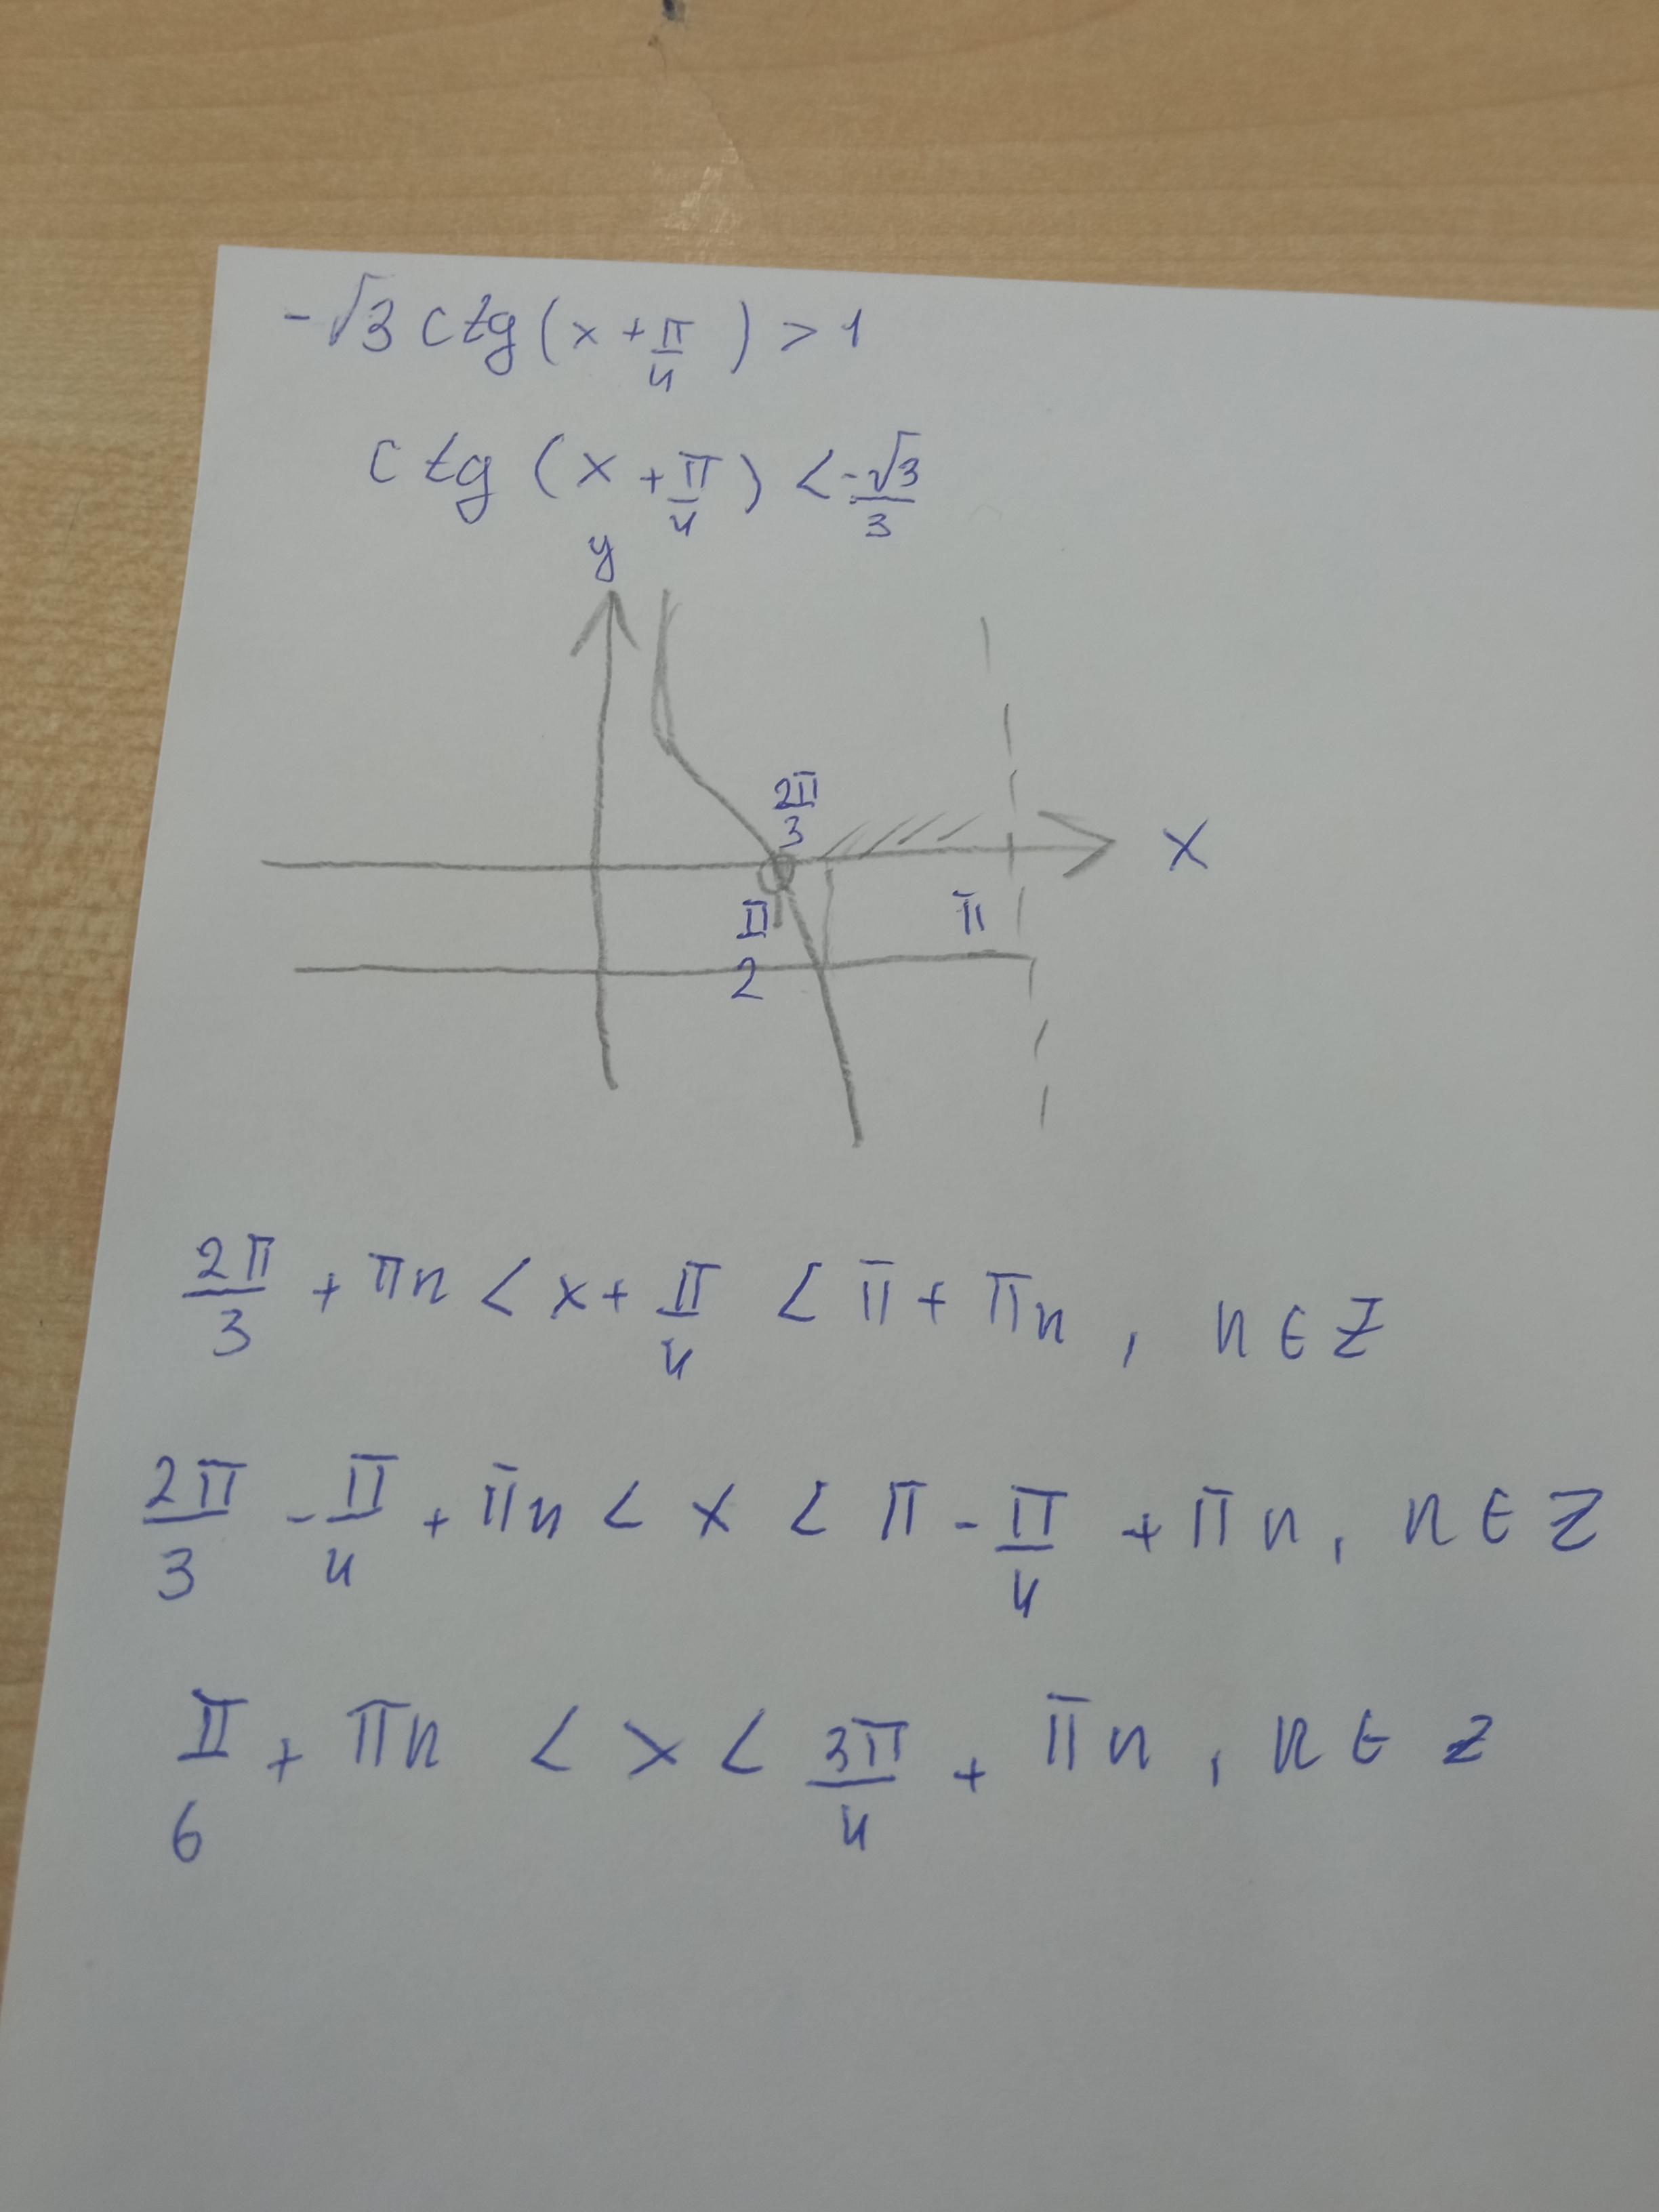 -√3 ctg(x + π/4) > 1
ctg (x + π/4) < -√3/3
y
2π/3
x
π/2
π
2π/3 + πn < x + π/4 < π + πn, n ∈ Z
2π/3 - π/4 + πn < x < π - π/4 + πn, n ∈ Z
π/6 + πn < x < 3π/4 + πn, n ∈ Z